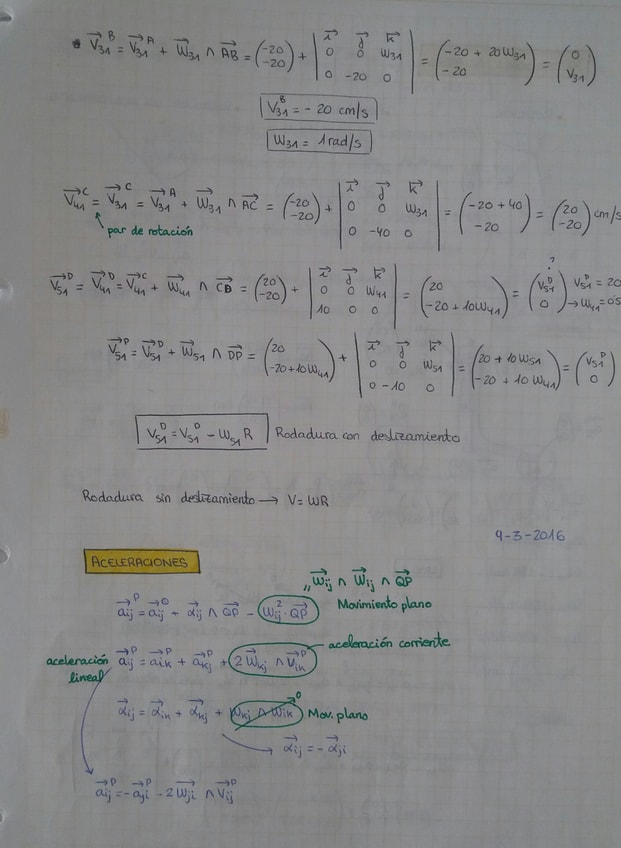 • V₃₁ᴮ = V₃₁ᴬ + W₃₁ ∧ AB = (-20 -20) + | i j k 0 0 W₃₁ 0 -20 0 | = (-20 + 20W₃₁ -20) = (0 V₃₁)
V₃₁ᴮ = - 20 cm/s
W₃₁ = 1 rad/s
V₄₁ᶜ = V₃₁ᶜ = V₃₁ᴬ + W₃₁ ∧ AC = (-20 -20) + | i j k 0 0 W₃₁ 0 -40 0 | = (-20 + 40 -20) = (20 -20) cm/s
par de rotación
V₅₁ᴰ = V₄₁ᴰ = V₄₁ᶜ + W₄₁ ∧ CD = (20 -20) + | i j k 0 0 W₄₁ 10 0 0 | = (20 -20 + 10W₄₁) = (V₅₁ᴰ 0) ? V₅₁ᴰ = 20 → W₄₁ = 0
V₅₁ᴾ = V₅₁ᴰ + W₅₁ ∧ DP = (20 -20 + 10W₄₁) + | i j k 0 0 W₅₁ 0 -10 0 | = (20 + 10W₅₁ -20 + 10W₄₁) = (V₅₁ᴾ 0)
V₅₁ᴰ = V₅₁ᴰ - W₅₁R Rodadura con deslizamiento
Rodadura sin deslizamiento → V = WR
9-3-2016
ACELERACIONES
,, Wij ∧ Wij ∧ QP
aijᴾ = aijQ + αij ∧ QP - Wij² · QP Movimiento plano
aceleración corriente
aceleración lineal aijᴾ = aikᴾ + akjᴾ + 2Wkj ∧ Vikᴾ
αij = αik + αkj + Wkj ∧ Wik 0 Mov. plano
αij = - αji
aijᴾ = - ajiᴾ - 2Wji ∧ Vijᴾ